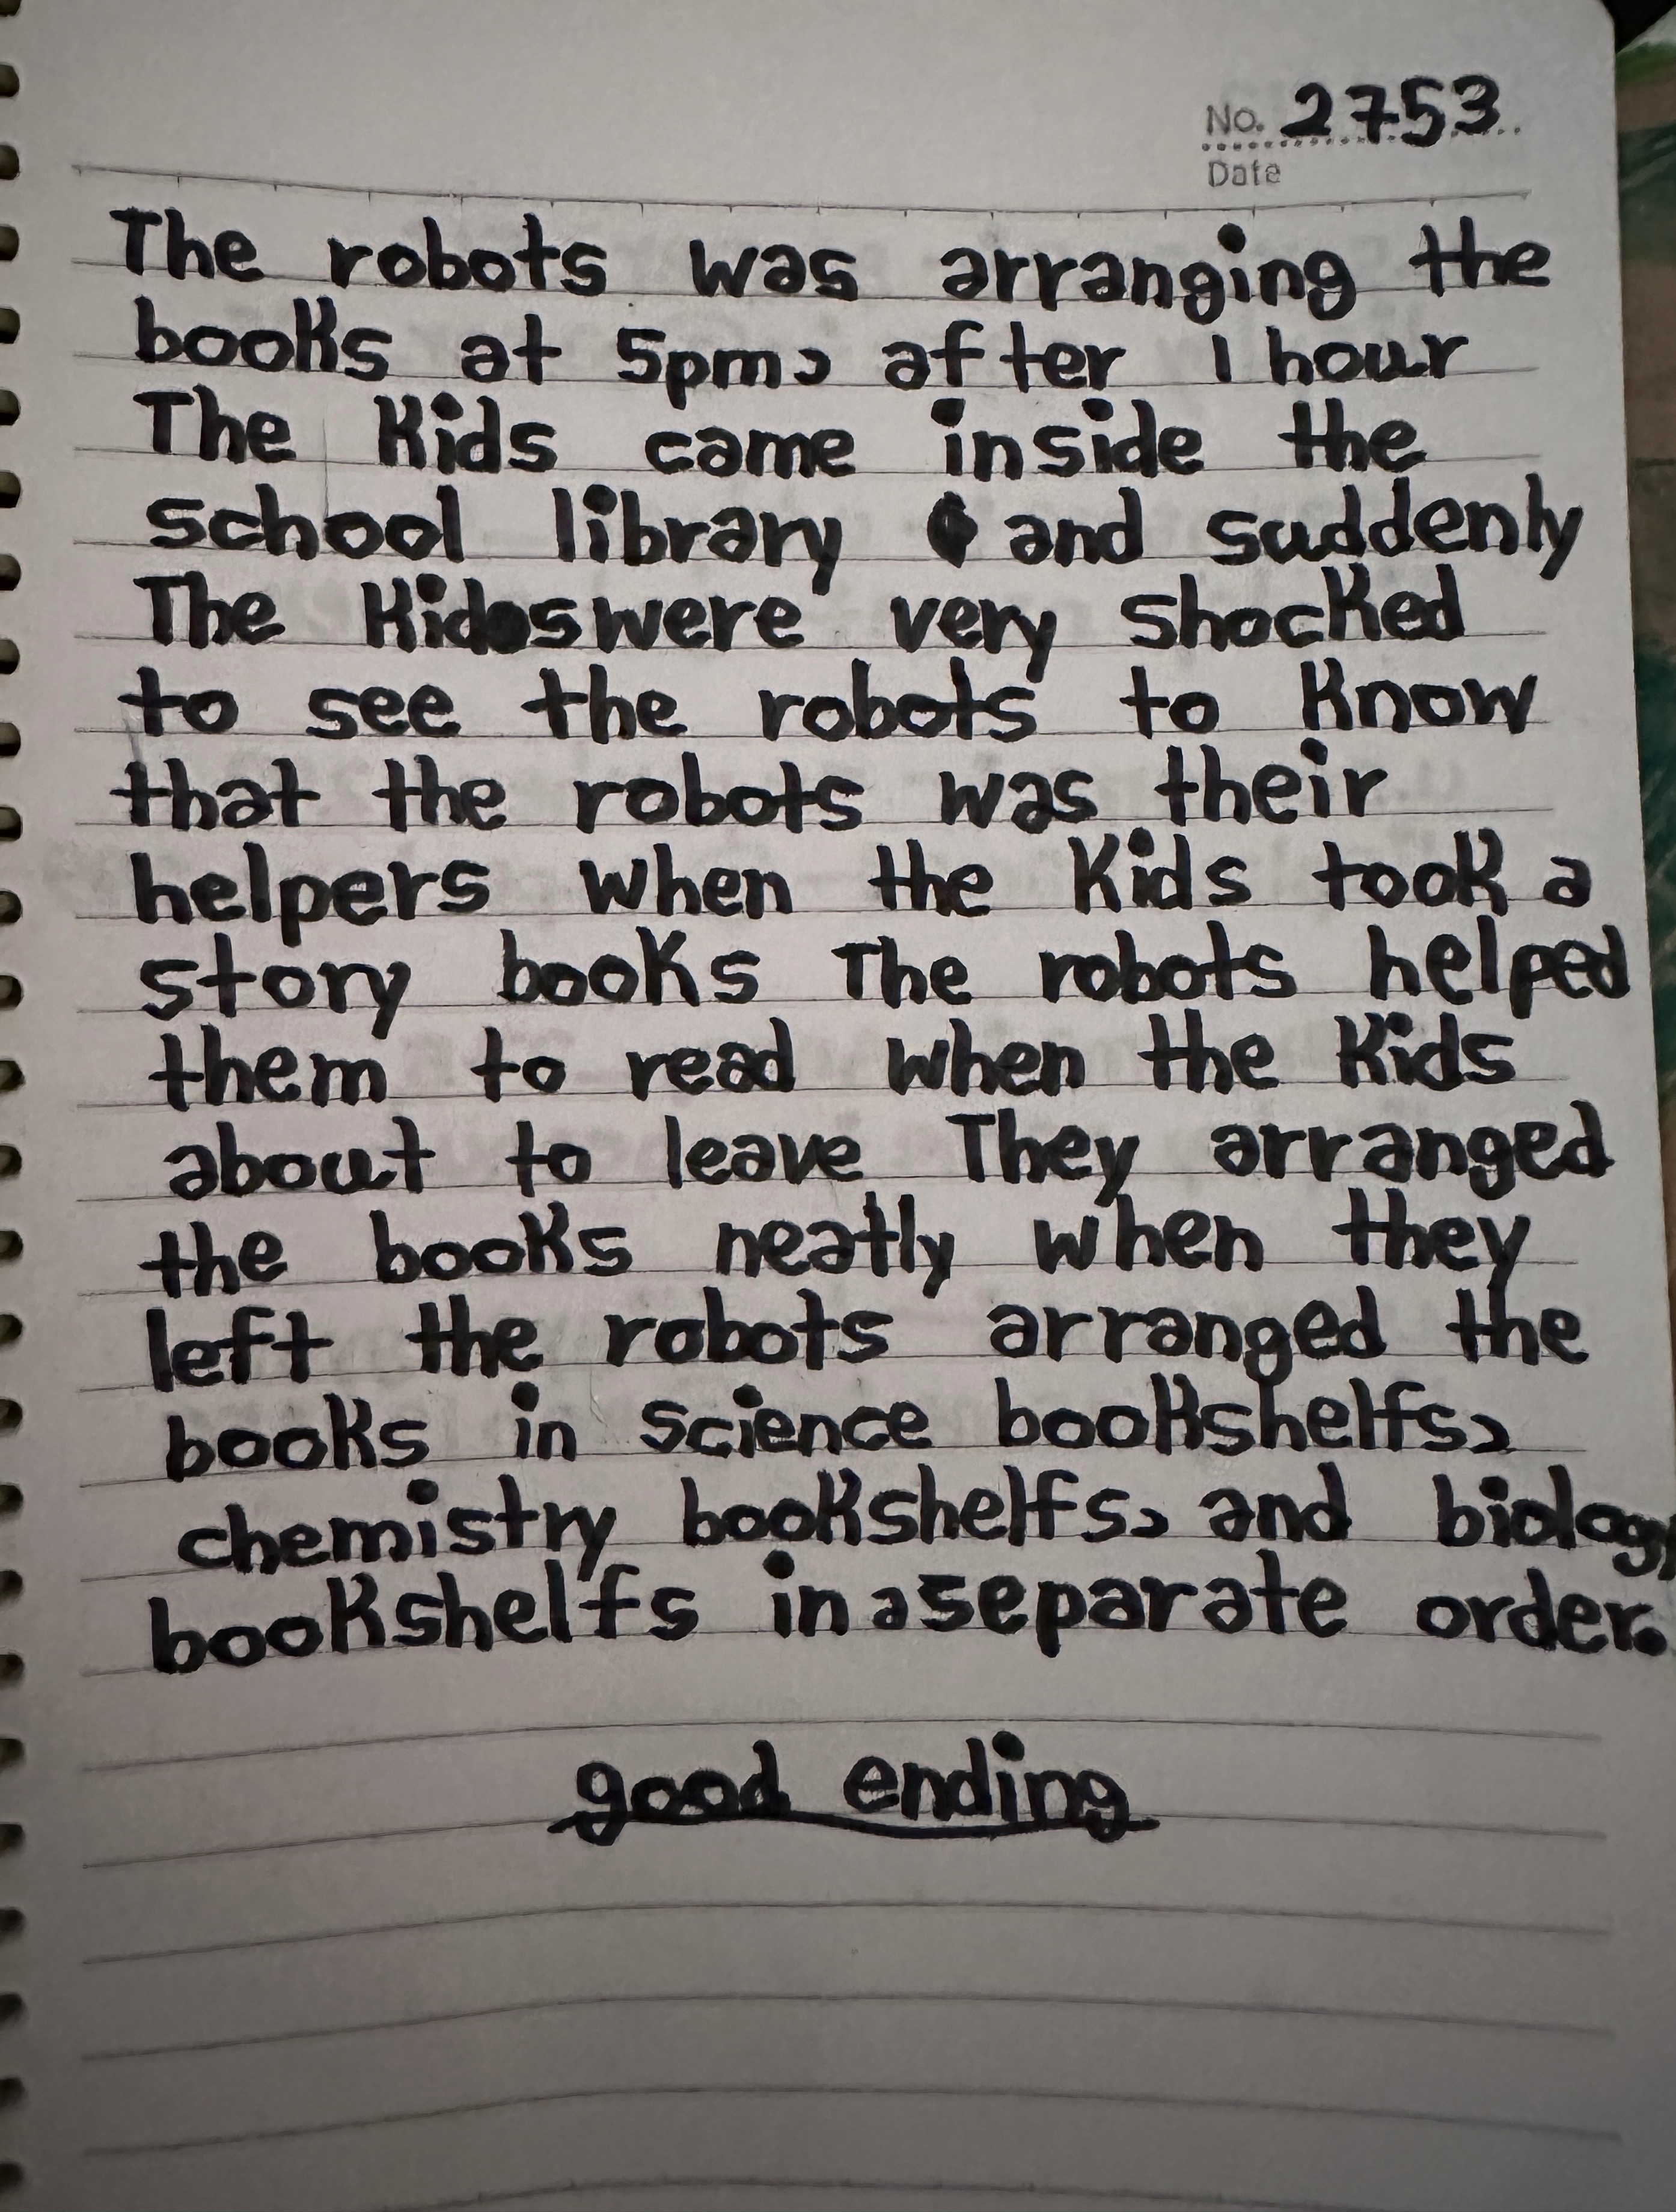 No. 2753
Date
The robots was arranging the
books at 5pm, after 1 hour
The Kids came inside the
school library and suddenly
The Kids were very shocked
to see the robots to know
that the robots was their
helpers when the Kids took a
story books The robots helped
them to read when the Kids
about to leave They arranged
the books neatly when they
left the robots arranged the
books in science bookshelfs,
chemistry bookshelfs, and biology
bookshelfs in a separate order.
good ending